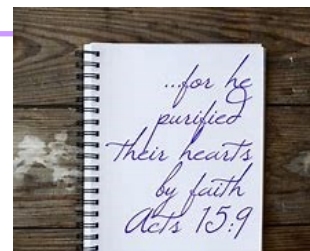 ...for he
purified
their hearts
by faith
Acts 15:9